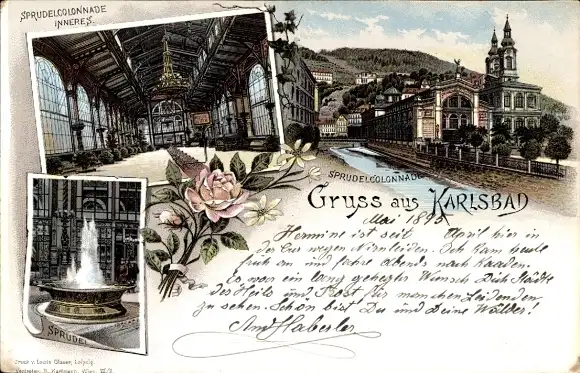 SPRUDELCOLONNADE
INNERES.
SPRUDELCOLONNADE
Gruss aus Karlsbad
Mai 1895
Hermine ist seit April hier in
der Cur wegen Nierenleiden. Ich kam heute
früh an und fahre abends nach Kaaden.
Es war ein lang gehegter Wunsch Dich Städte
des Heils und Trost für manchen Leidenden
zu sehen. Schön bist Du und deine Wälder!
And Haberler
SPRUDEL
Druck v. Louis Glaser, Leipzig.
Vertreter: S. Kartmann, Wien